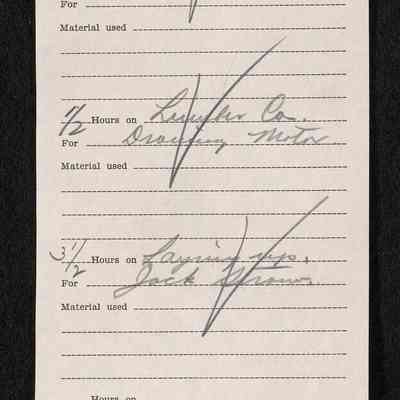 For
Material used
1/2 Hours on Lumber Co.
For Drawing Motor
Material used
3 1/2 Hours on Laying up.
For Jack Straw
Material used
Hours on